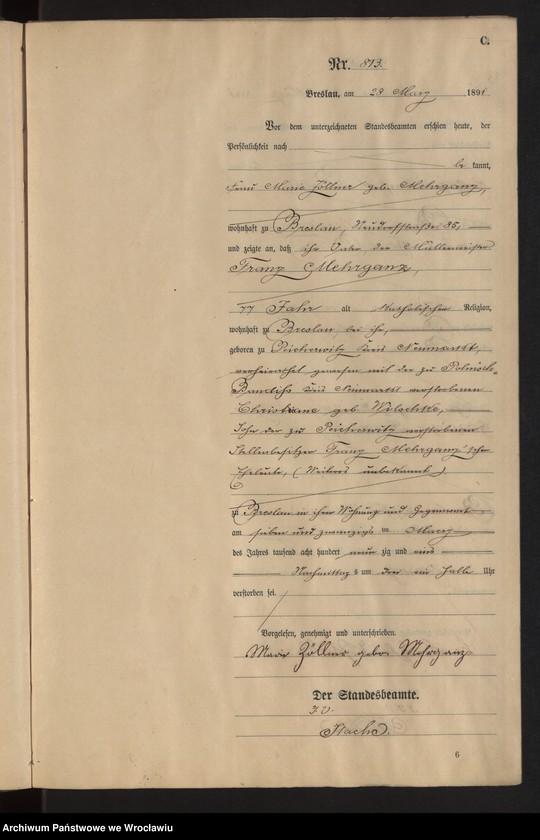 C.
Nr. 813.
Breslau, am 28 März 1891
Vor dem unterzeichneten Standesbeamten erschien heute, der
Persönlichkeit nach
be kannt,
Frau Marie Zöllner geb. Mehrganz,
wohnhaft zu Breslau, 35,
und zeigte an, daß ihr Vater der Müllermeister
Franz Mehrganz,
77 Jahr alt katholischer Religion,
wohnhaft zu Breslau, bei ihr,
geboren zu Peicherwitz Kreis Neumarkt,
verheirathet gewesen mit der zu Polnisch-
Kreis Neumarkt verstorbenen
Christiane geb.
Sohn der zu Peicherwitz verstorbenen
Stellenbesitzer Franz Mehrganz'schen
Eheleute, (Weiteres unbekannt)
zu Breslau in ihrer Wohnung und Gegenwart
am sieben und zwanzigsten März
des Jahres tausend acht hundert neun zig und eins
Nachmittags um drei ein halb Uhr
verstorben sei.
Vorgelesen, genehmigt und unterschrieben.
Marie Zöllner geborne Mehrganz
Der Standesbeamte.
J. V.
6
Archiwum Państwowe we Wrocławiu